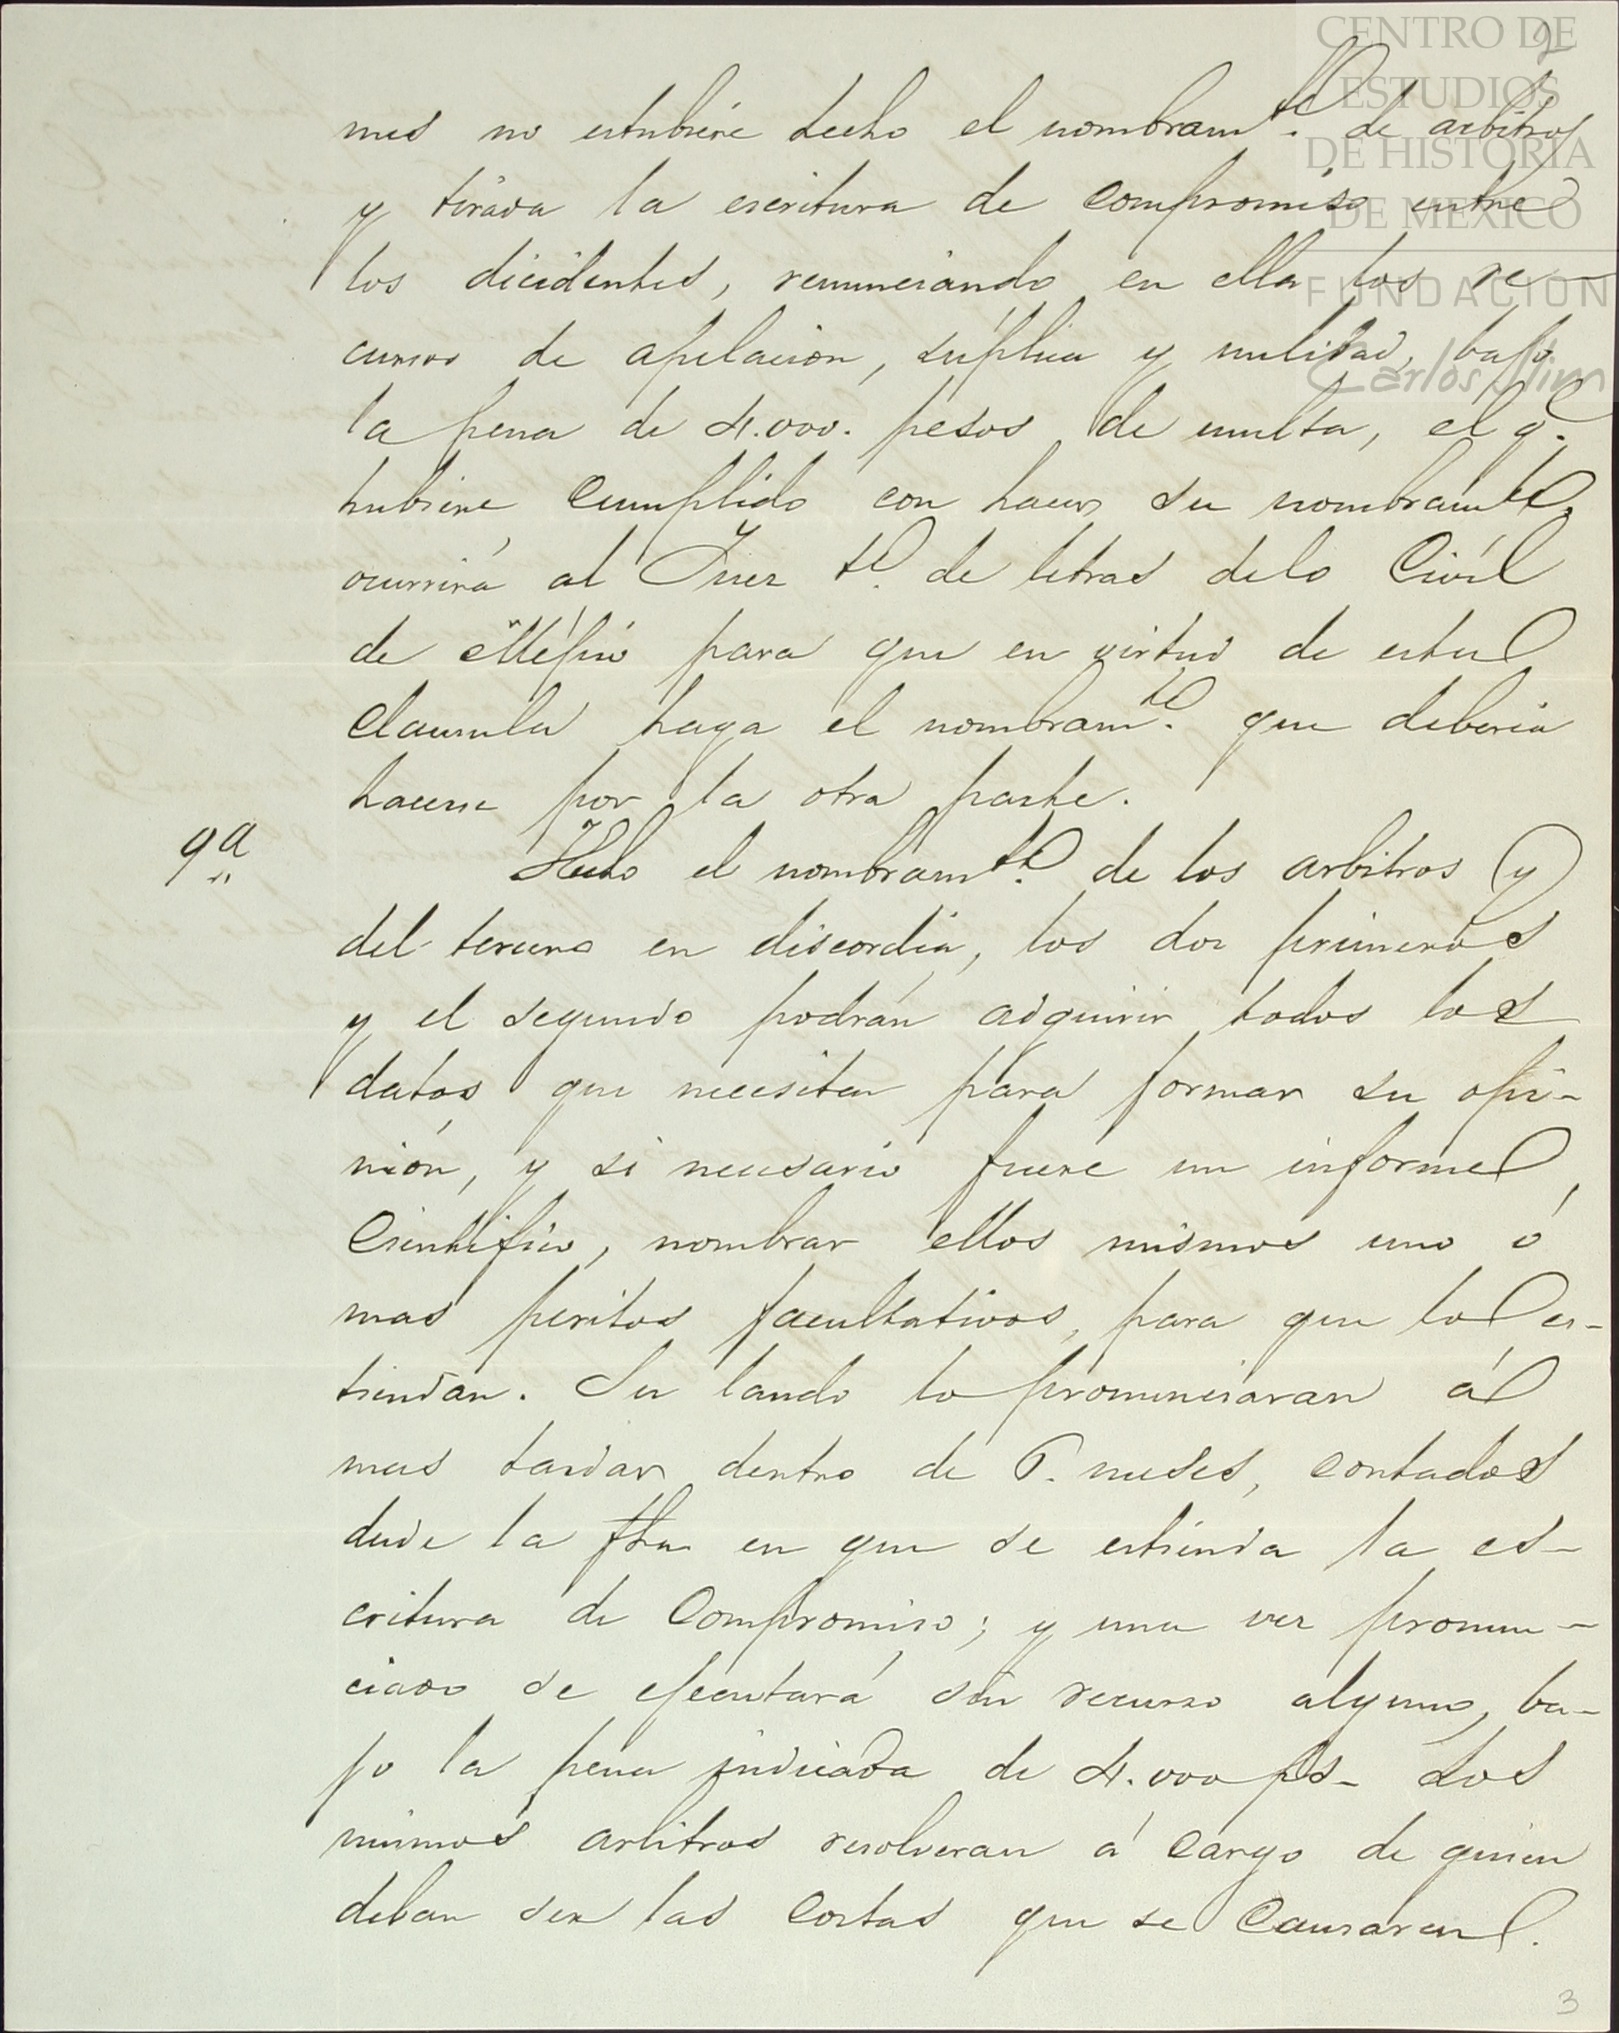 2
CENTRO DE
ESTUDIOS
DE HISTORIA
DE MEXICO
FUNDACION
Carlos Slim
mes no estubiere hecho el nombram.te de arbitros
y tirada la escritura de compromiso entre
los dicidentes, renunciando en ella los re-
cursos de apelacion, súplica y nulidad, bajo
la pena de 4.000. pesos de multa, el q.e
hubiere cumplido con hacer su nombram.te
ocurrirá al Juez de letras delo Civíl
de Méjico para que en virtud de esta
clausula haga el nombram.te que deberia
hacerse por la otra parte.
9.a Hecho el nombram.te de los arbitros y
del tercero en discordia, los dos primeros
y el segundo podrán adquirir todos los
datos que necesiten para formar su opi-
nión, y si necesario fuere un informe
Cientifico, nombrar ellos mismos uno ó
mas peritos facultativos, para que lo es-
tiendan. Su laudo lo pronunciaran á
mas tardar dentro de 6. meses, contados
desde la fha en que se estienda la es-
critura de Compromiso; y una vez pronun-
ciado se ejecutará sin recurso alguno, ba-
jo la pena indicada de 4.000 ps- Los
mismos arbitros resolveran á cargo de quien
deban ser las costas que se causaren.
3